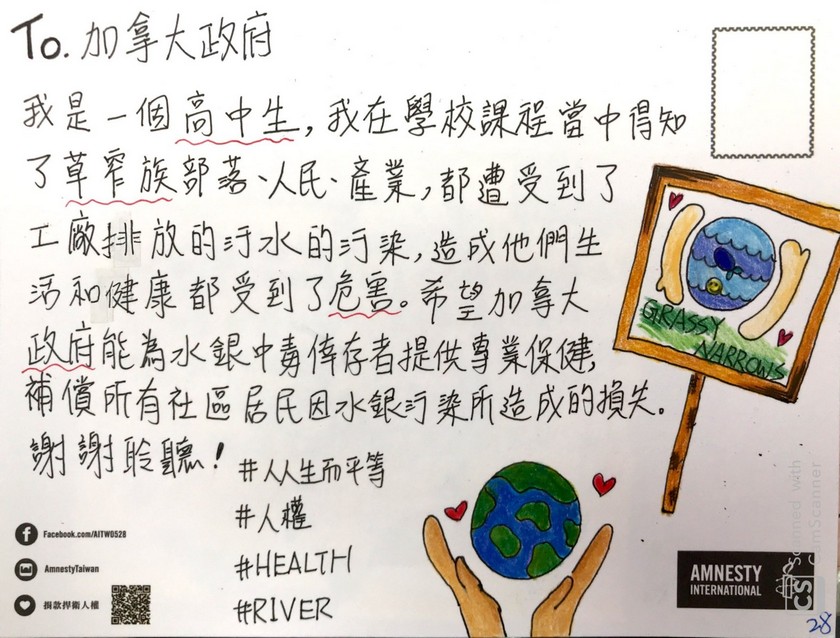 To. 加拿大政府
我是一個高中生，我在學校課程當中得知
了草窄族部落、人民、產業，都遭受到了
工廠排放的汙水的汙染，造成他們生
活和健康都受到了危害。希望加拿大
政府能為水銀中毒倖存者提供專業保健，
補償所有社區居民因水銀汙染所造成的損失。
謝謝聆聽！
#人人生而平等
#人權
#HEALTH
#RIVER
GRASSY
NARROWS
Facebook.com/AITW0528
AmnestyTaiwan
捐款捍衛人權
AMNESTY
INTERNATIONAL
CS
Scanned with
CamScanner
28